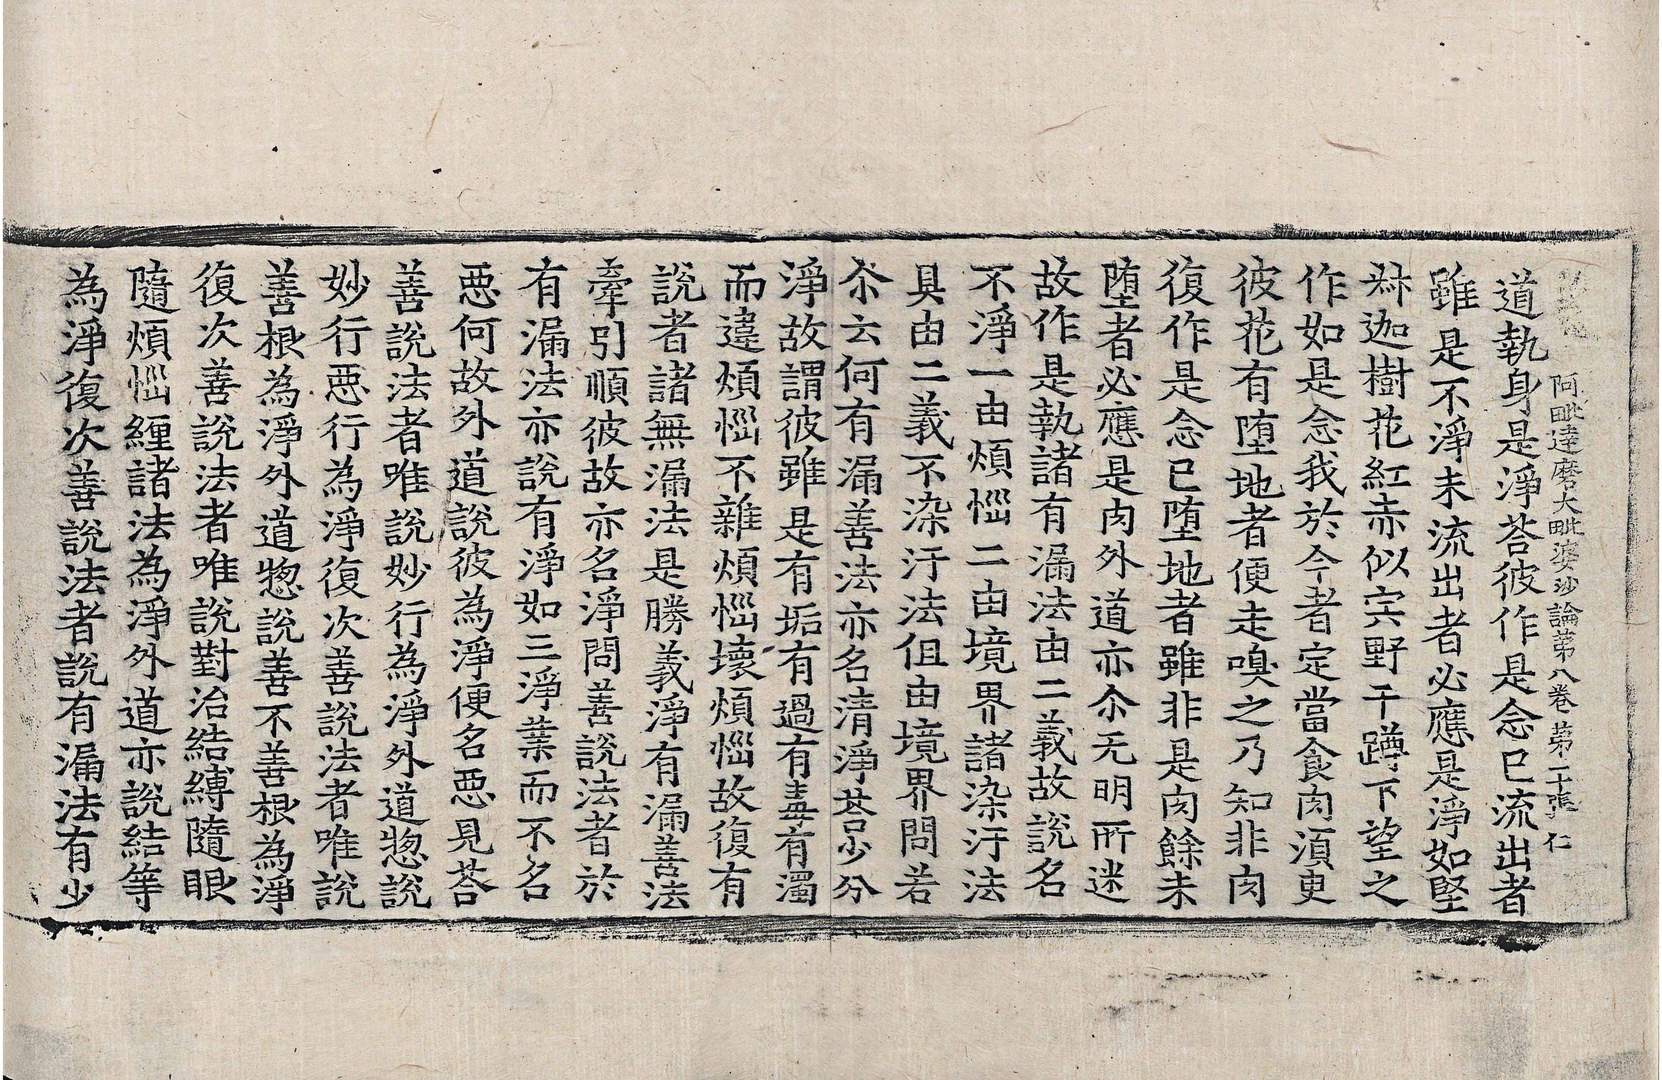 阿毗達磨大毗婆沙論第八卷 第二十張 仁
道執身是淨荅彼作是念已流出者
雖是不淨未流出者必應是淨如堅
叔迦樹花紅赤似宍野干蹲下望之
作如是念我於今者定當食肉湏臾
彼花有墮地者便走嗅之乃知非肉
復作是念已墮地者雖非是肉餘未
墮者必應是肉外道亦尒无明所迷
故作是執諸有漏法由二義故說名
不淨一由煩惱二由境界諸染汙法
具由二義不染汙法但由境界問若
尒云何有漏善法亦名清淨荅少分
淨故謂彼雖是有垢有過有毒有濁
而違煩惱不雜煩惱壞煩惱故復有
說者諸無漏法是勝義淨有漏善法
牽引順彼故亦名淨問善說法者於
有漏法亦說有淨如三淨業而不名
惡何故外道說彼為淨便名惡見荅
善說法者唯說妙行為淨外道惣說
妙行惡行為淨復次善說法者唯說
善根為淨外道惣說善不善根為淨
復次善說法者唯說對治結縛隨眠
隨煩惱纏諸法為淨外道亦說結等
為淨復次善說法者說有漏法有少